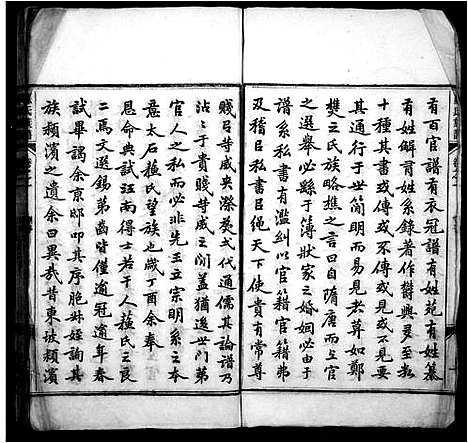 有百官譜有衣冠譜有姓苑有姓纂
有姓解有姓系錄著作欝興多至数
十種其書或傳或不傳或見或不見要
其通行于世簡明而易見者莫如鄭
樵之氏族略樵之言曰自隋唐而上官
之選舉必繇于簿狀家之婚姻必由于
譜系私書有濫糾以官籍官籍弗
及稽㠯私書㠯繩天下使貴有常尊
賤㠯等威央漈茲式代通儒其論譜乃
沾沾于貴賤等威之閒蓋猶逡世門第
官人之私而必非先王立宗明系之本
意太石蘓氏望族也歲丁酉余奉
恩命典試得士若干人蘓氏之良
二焉文選錫第齒皆僅逾冠逾年春
試畢謁余京邸叩其序胞姊姪詢其
族頛濱之遺余曰異哉昔東坡頛濱